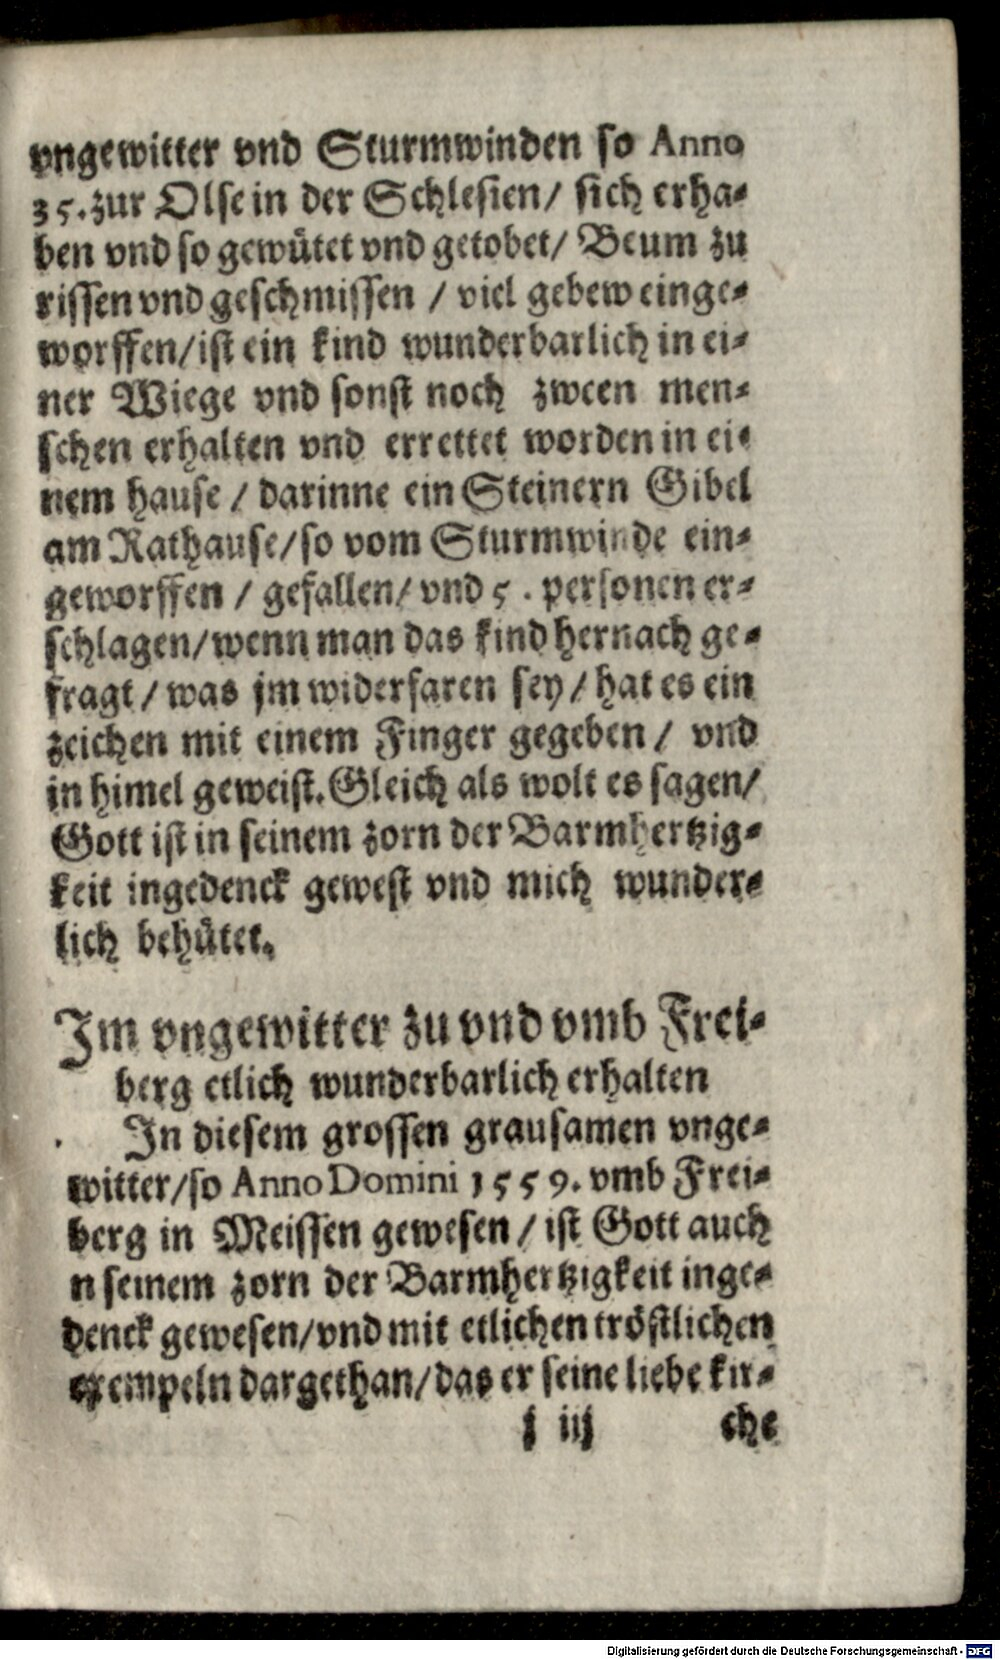 vngewitter vnd Sturmwinden so Anno
35. zur Olse in der Schlesien/ sich erha-
ben vnd so gewütet vnd getobet/ Beum zu
rissen vnd geschmissen / viel gebew einge-
worffen/ist ein kind wunderbarlich in ei-
ner Wiege vnd sonst noch zween men-
schen erhalten vnd errettet worden in ei-
nem hause / darinne ein Steinern Gibel
am Rathause/so vom Sturmwinde ein-
geworffen / gefallen/ vnd 5 . personen er-
schlagen/wenn man das kind hernach ge-
fragt / was jm widerfaren sey / hat es ein
zeichen mit einem Finger gegeben / vnd
in himel geweist. Gleich als wolt es sagen/
Gott ist in seinem zorn der Barmhertzig-
keit ingedenck gewest vnd mich wunder-
lich behütet.
Jm vngewitter zu vnd vmb Frei-
berg etlich wunderbarlich erhalten
Jn diesem grossen grausamen vnge-
witter/so Anno Domini 1559. vmb Frei-
berg in Meissen gewesen / ist Gott auch
n seinem zorn der Barmhertzigkeit inge-
denck gewesen/vnd mit etlichen tröstlichen
exempeln dargethan/das er seine liebe kir-
j iij che
Digitalisierung gefördert durch die Deutsche Forschungsgemeinschaft - DFG